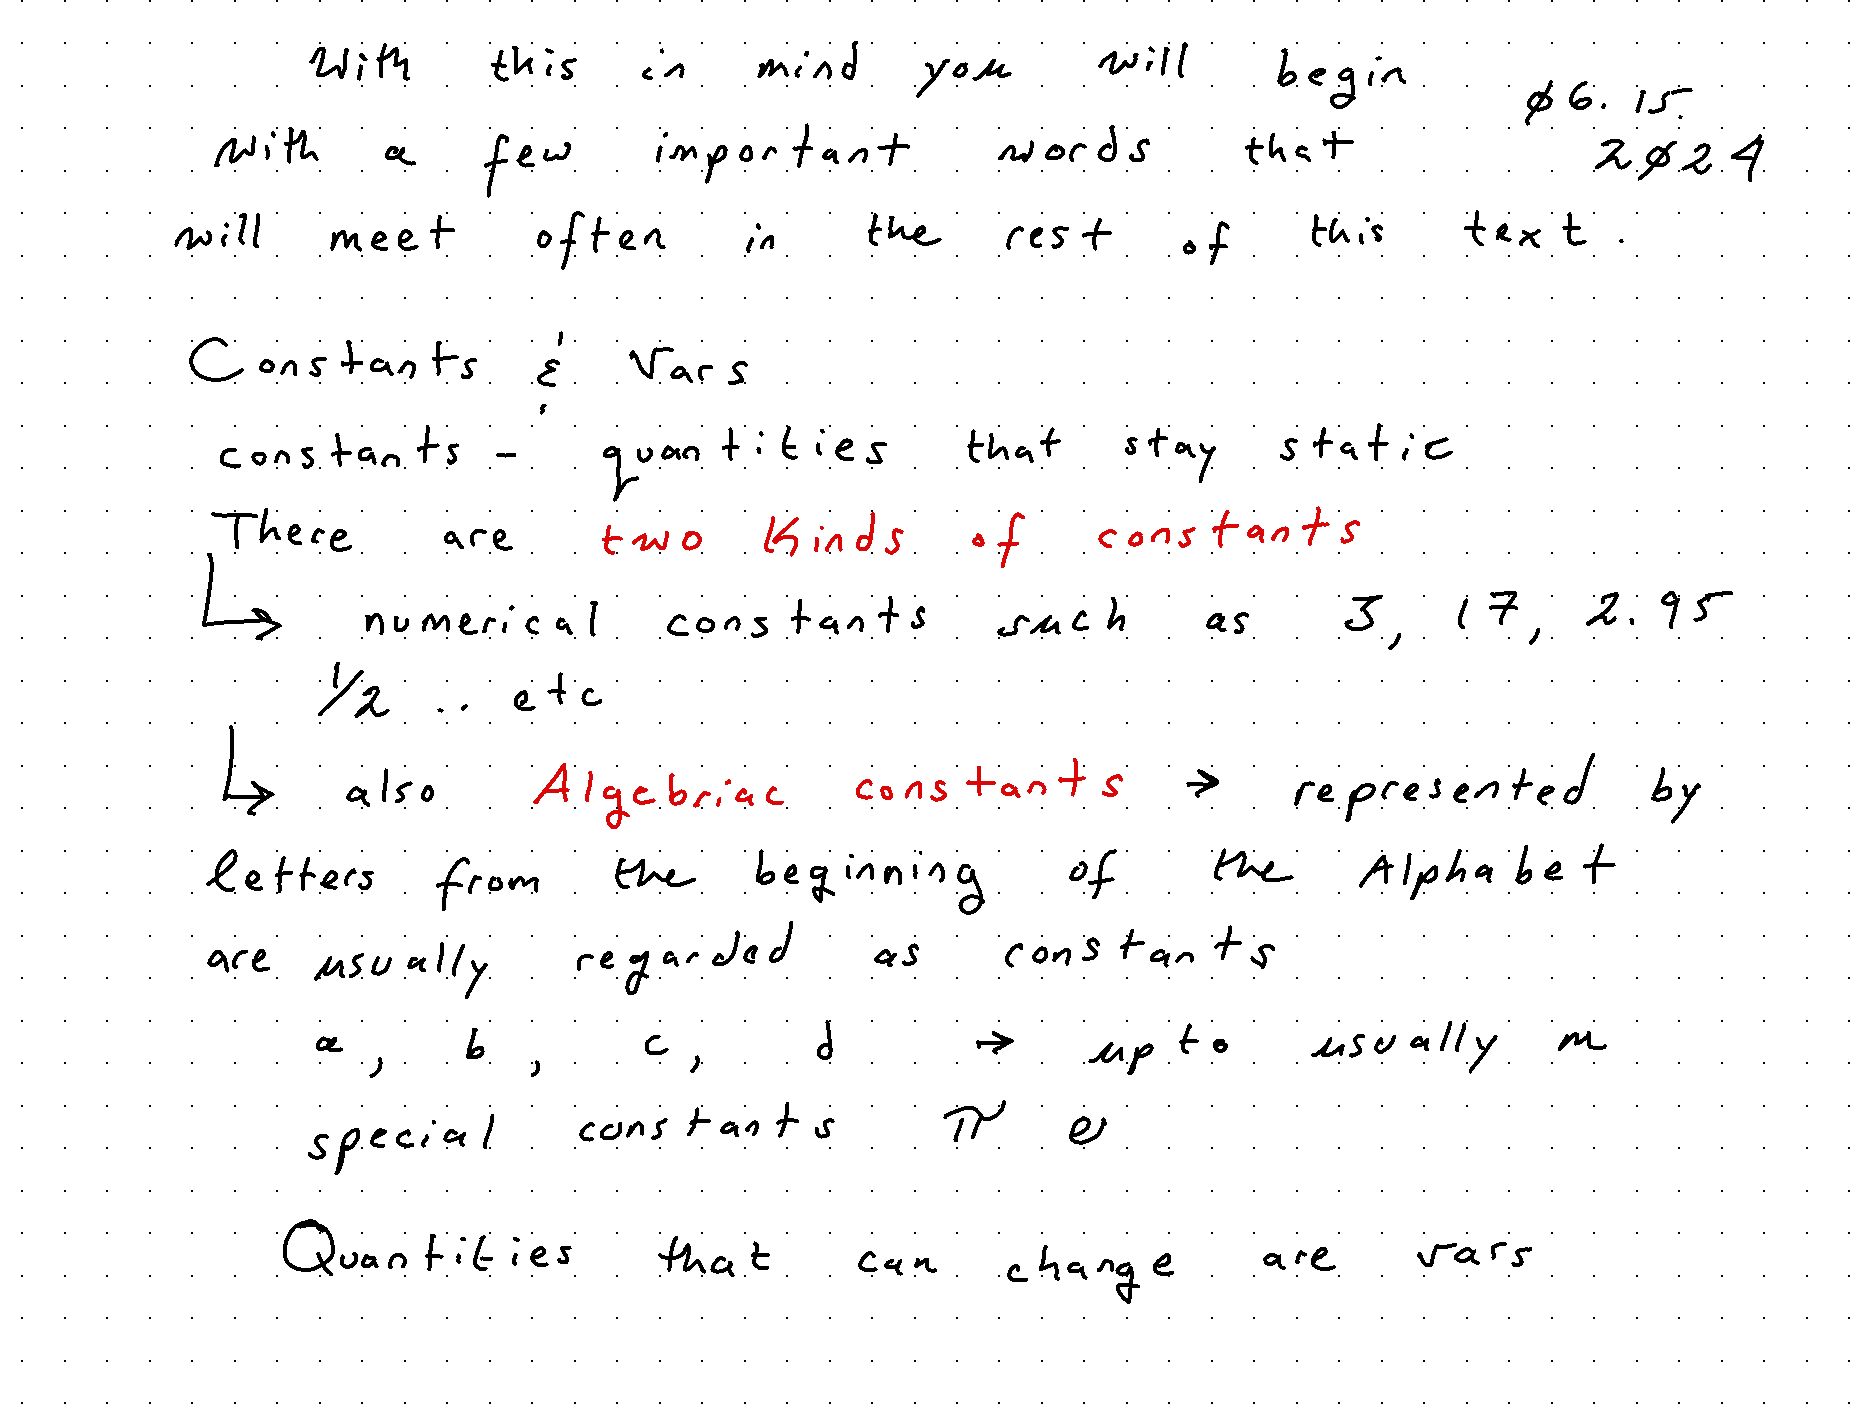 With this in mind you will begin
ø6.15.
2ø24
with a few important words that
will meet often in the rest of this text.
Constants & Vars
constants - quantities that stay static
There are two kinds of constants
↳ numerical constants such as 3, 17, 2.95
1/2 .. etc
↳ also Algebriac constants → represented by
letters from the beginning of the Alphabet
are usually regarded as constants
a, b, c, d → up to usually m
special constants π e
Quantities that can change are vars